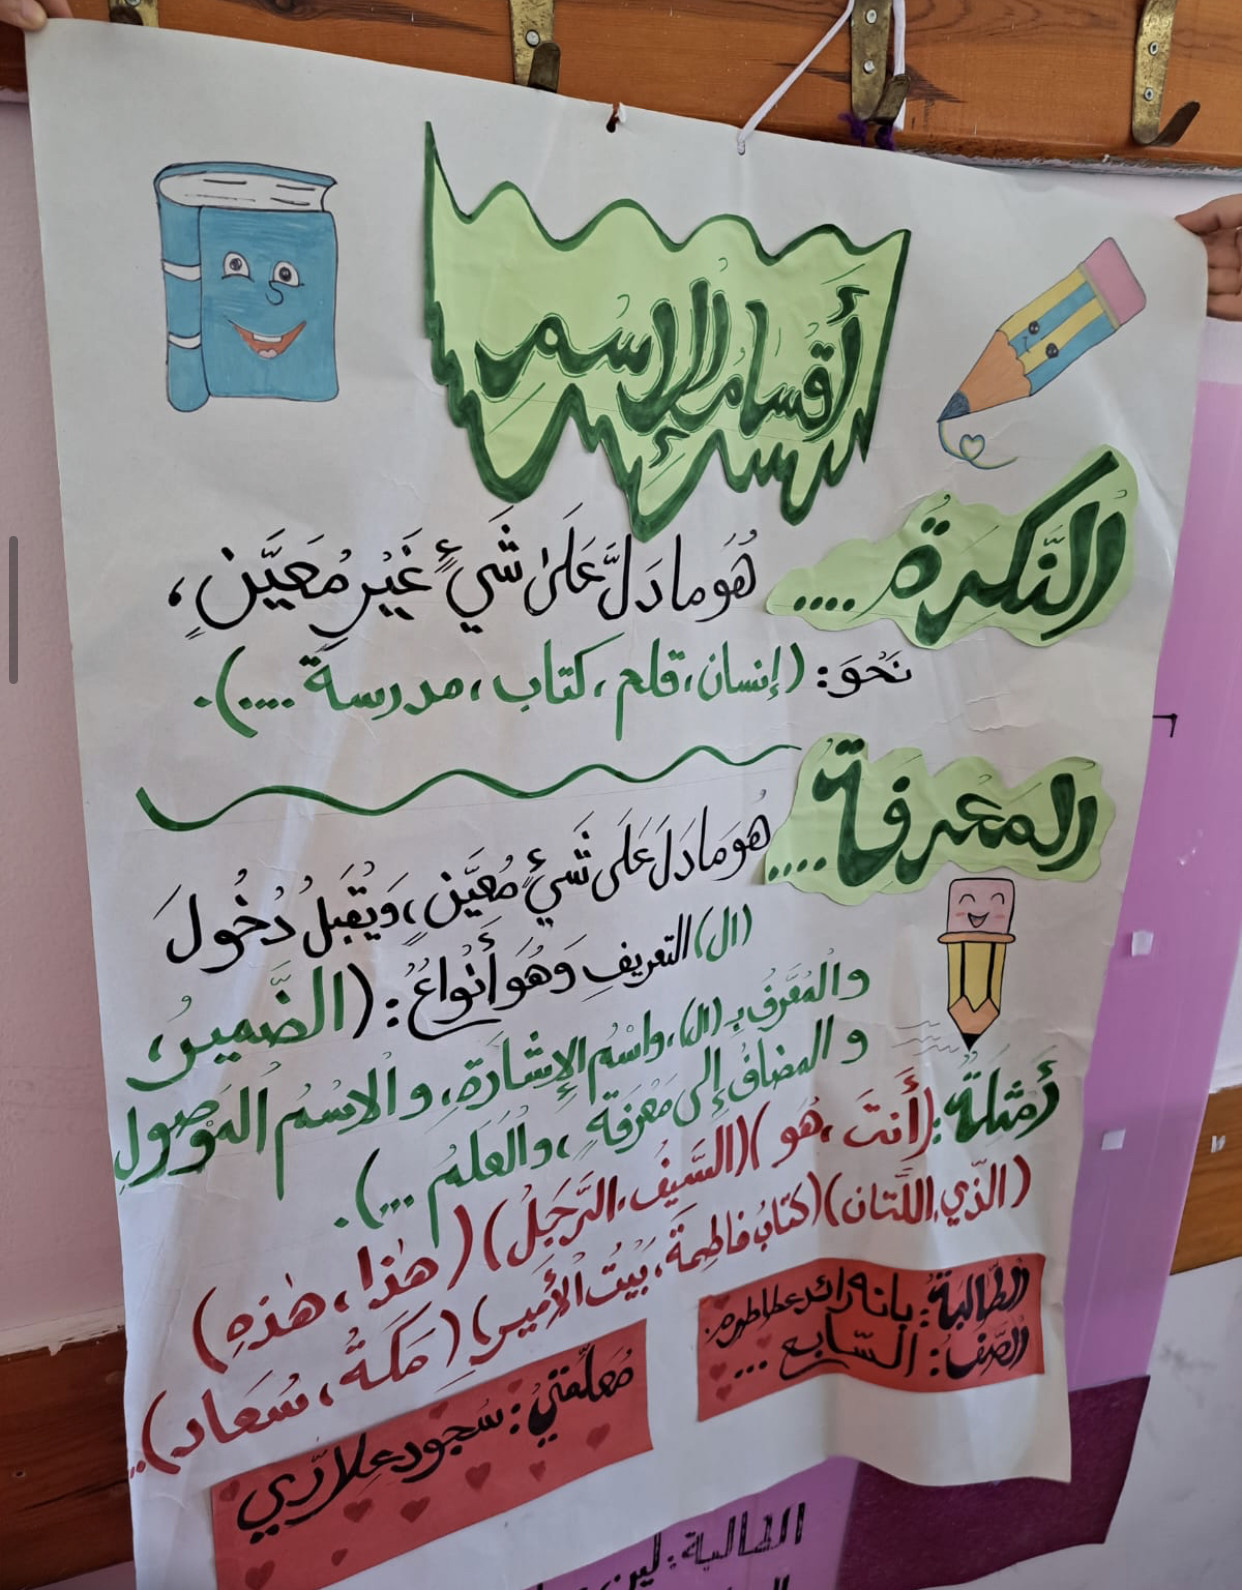 أقسام الإسم
النَّكرةُ ....
هُوَ ما دَلَّ عَلَىٰ شَيءٍ غَيْرِ مُعَيَّنٍ،
نَحْوَ: (إنسان، قلم، كتاب، مدرسة ....).
المَعْرفَةُ ....
هُوَ مَا دَلَ عَلَى شَيءٍ مُعَيَّنٍ، وَيُقْبَلُ دُخُولَ
(ال) التعريفِ وَهُوَ أَنْوَاعُ: (الضَّميرُ،
والمُعَّرفُ بِـ (ال)، واسْمُ الإِشَارَةِ، والاسْمُ المَوْصُولِ
والمضافُ إلى مَعْرفَةٍ، والْعَلمُ ...).
أمثلةٌ: (أَنتَ، هُو) (السَّيفُ، الرَّجَلُ) (هٰذا، هٰذهِ)
(الَّذي، اللَّتان) (كتابُ فاطِمةَ، بَيْتُ الأميرِ) (مَكَةُ، سُعَاد)..
الطَّالبةُ: بانه رائد
الصَّفُ: السّابع ...
مُعلّمَتي: سجود علاري
الطالبة: لين